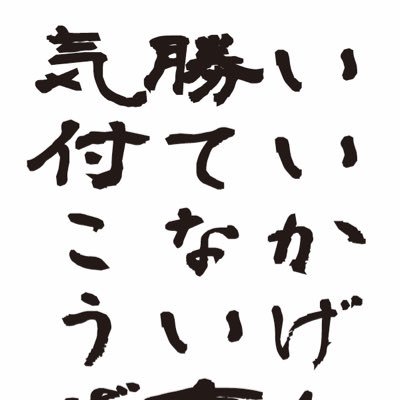 いいかげ
勝てない
気付こう